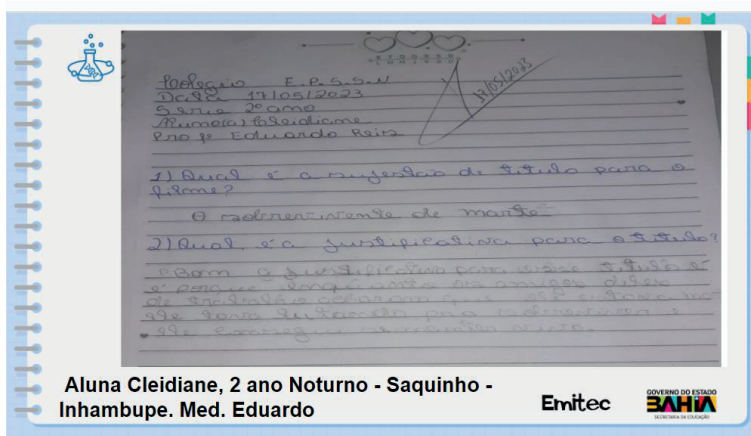 Colegio E.P.S.S.N
Data 17/05/2023
17/05/2023
Serie 2º ano
Aluno(a) Cleidiane
Pro fº Eduardo Reis
1) Qual é a sujestão de titulo para o
filme?
O sobrevivente de marte
2) Qual é a justificativa para o titulo?
Bom a justificativa para esse titulo é
é porque enquanto os amigos deles
de trabalho acharam que ele estava
ele tava lutando pra sobreviver e
ele consegue
Aluna Cleidiane, 2 ano Noturno - Saquinho -
Inhambupe. Med. Eduardo
Emitec
GOVERNO DO ESTADO
BAHIA
SECRETARIA DA EDUCAÇÃO